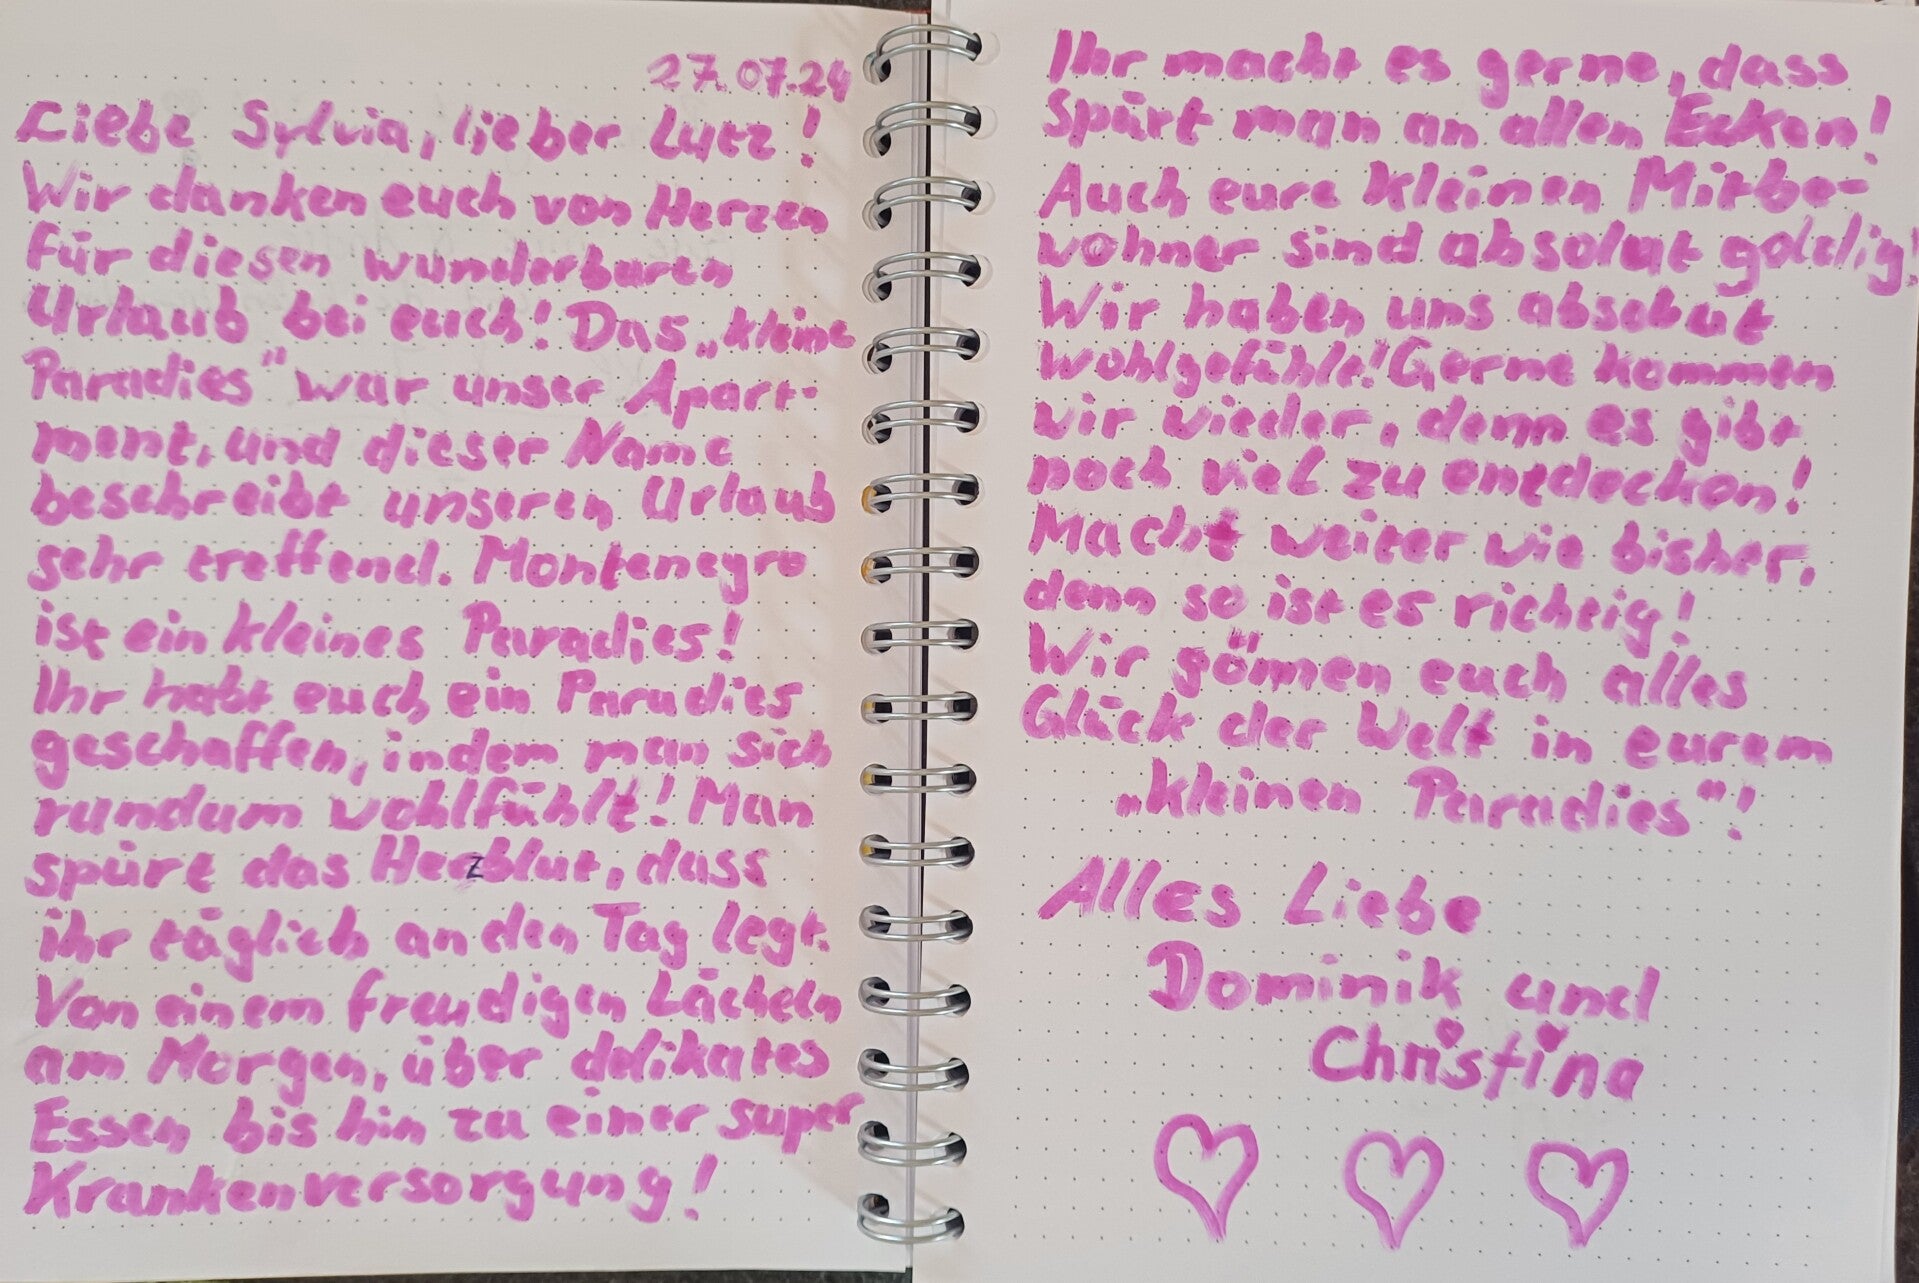 27.07.24
Liebe Sylvia, lieber Lutz!
Wir danken euch von Herzen
für diesen wunderbaren
Urlaub bei euch! Das „kleine
Paradies" war unser Apart-
ment, und dieser Name
beschreibt unseren Urlaub
sehr treffend. Montenegro
ist ein kleines Paradies!
Ihr habt euch ein Paradies
geschaffen, indem man sich
rundum wohlfühlt! Man
spürt das Herzblut, dass
ihr täglich an den Tag legt.
Von einem freudigen Lächeln
am Morgen, über delikates
Essen bis hin zu einer super
Krankenversorgung!
Ihr macht es gerne, dass
spürt man an allen Ecken!
Auch eure kleinen Mitbe-
wohner sind absolut goldig!
Wir haben uns absolut
wohlgefühlt! Gerne kommen
wir wieder, denn es gibt
noch viel zu entdecken!
Macht weiter wie bisher,
denn so ist es richtig!
Wir gönnen euch alles
Glück der Welt in eurem
„kleinen Paradies"!
Alles Liebe
Dominik und
Christina